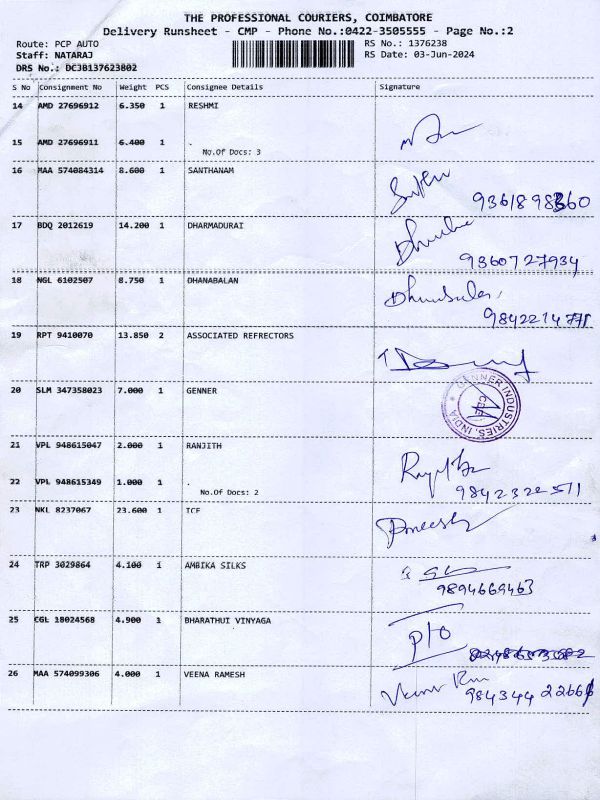 THE PROFESSIONAL COURIERS, COIMBATORE
Delivery Runsheet - CMP - Phone No.:0422-3505555 - Page No.:2
Route: PCP AUTO
RS No.: 1376238
Staff: NATARAJ
RS Date: 03-Jun-2024
DRS No.: DCJB137623802
S No Consignment No Weight PCS Consignee Details Signature
14 AMD 27696912 6.350 1 RESHMI
15 AMD 27696911 6.400 1 .
No.Of Docs: 3
16 MAA 574084314 8.600 1 SANTHANAM
9361898360
17 BDQ 2012619 14.200 1 DHARMADURAI
9360727934
18 NGL 6102507 8.750 1 DHANABALAN
9842214771
19 RPT 9410070 13.850 2 ASSOCIATED REFRECTORS
20 SLM 347358023 7.000 1 GENNER
GENNER INDUSTRIES, INDIA * CBE
21 VPL 948615047 2.000 1 RANJITH
22 VPL 948615349 1.000 1 .
No.Of Docs: 2
9842322511
23 NKL 8237067 23.600 1 TCF
24 TRP 3029864 4.100 1 AMBIKA SILKS
9894669463
25 CGL 18024568 4.900 1 BHARATHUI VINYAGA
p/o
26 MAA 574099306 4.000 1 VEENA RAMESH